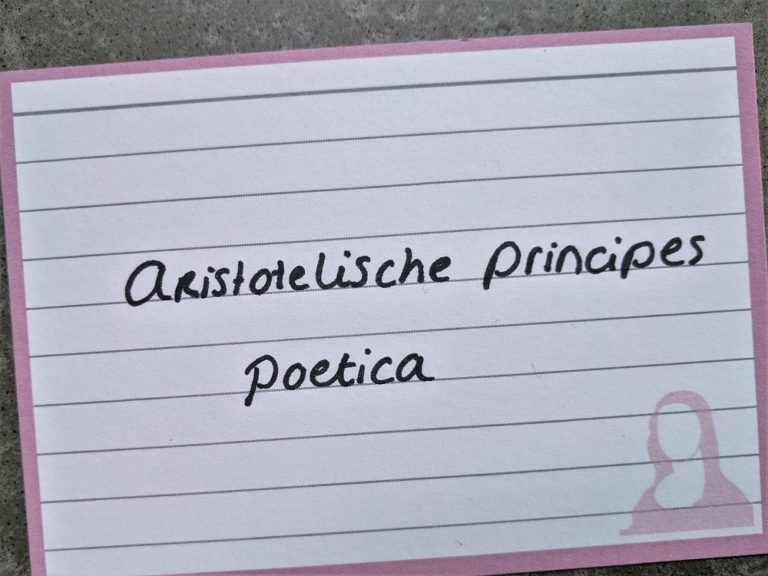 Aristotelische principes
poetica